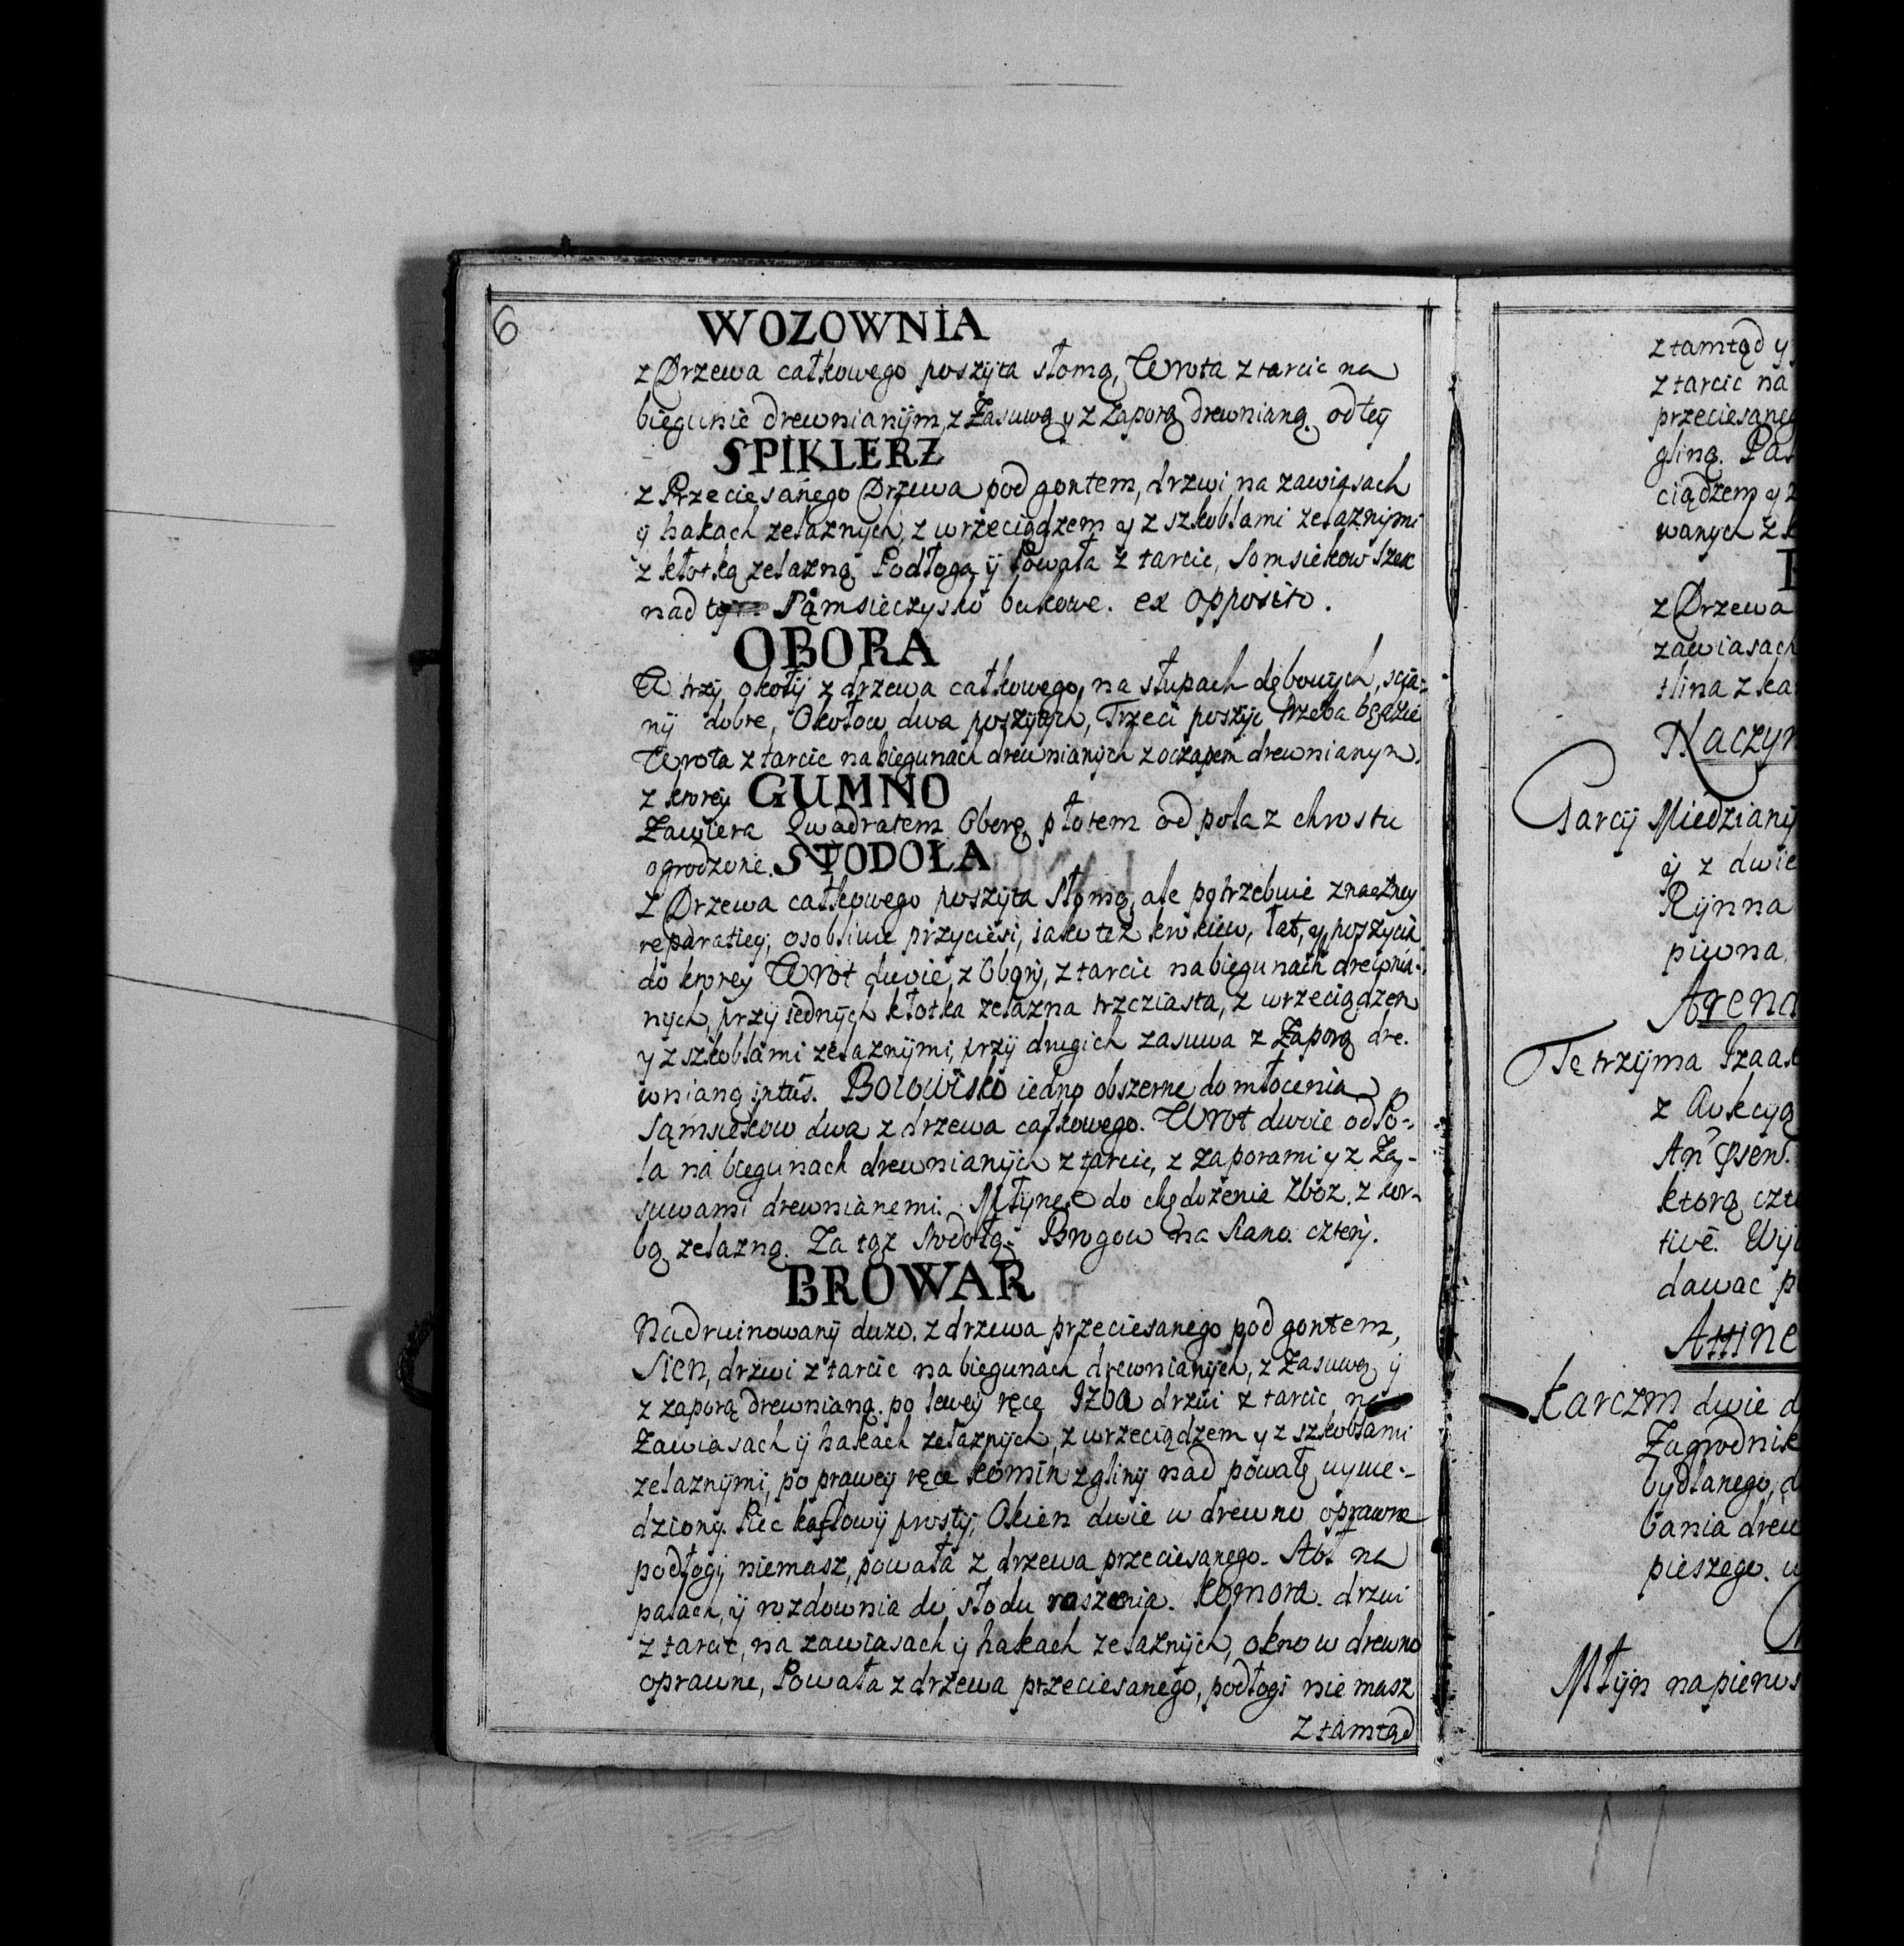 6
WOZOWNIA
z Drzewa całkowego poszyta słomą, Wrota z tarcic na
biegunie drewnianÿm, z Zasuwą y z Zaporą drewnianą. od tey
SPIKLERZ
z Przeciesanego Drzewa pod gontem, drzwi na zawiasach
y hakach zelaznych, z wrzeciądzem y z szkoblami zelaznymi
z kłotką zelazną Podłoga ÿ Powała z tarcic, Somsiekow szesc
nad Sąmsieczysko bukowe. ex opposito.
OBORA
W trzÿ okołÿ z drzewa całkowego, na słupach dębowych, scia-
nÿ dobre, Okołow dwa poszytych, Trzeci poszyc trzeba będzie
Wrota z tarcic na biegunach drewnianych z oczapem drewnianym.
z ktorey GUMNO
Zawiera Quadratem Oborę płotem od pola z chrostu
ogrodzone. STODOŁA
Z Drzewa całkowego poszyta słomą, ale potrzebuie znaczney
reparatiey, osobliwie przyciesi, iako tez krokiew, łat, y poszycia
do ktorey Wrot dwoie, z Oborÿ, z tarcic na biegunach drewnia-
nych, przÿ iednÿch kłotka zelazna trzcziasta, z wrzeciądzem
y z szkoblami zelaznÿmi, przÿ drugich zasuwa z Zaporą dre-
wnianą intus. Boiowisko iedno obszerne do młocenia
Sąmsiekow dwa z drzewa całkowego. Wrot dwoie od Po-
la na biegunach drewnianÿch z tarcic, z zaporami y z Za-
suwami drewnianemi. Młynek do chędożenia zboz. z kor-
bą zelazną. Za tąz stodołą Brogow na siano czterÿ.
BROWAR
Nadruinowanÿ duzo. z drzewa przeciesanego pod gontem,
Sien, drzwi z tarcic na biegunach drewnianÿch, z zasuwą ÿ
z zaporą drewnianą. po lewey ręce Izba drzwi z tarcic na
zawiasach ÿ hakach zelaznÿch, z wrzeciądzem y z szkoblami
zelaznÿmi, po prawey ręce komin z glinÿ nad powałę wywie-
dziony. Piec kaflowÿ prostÿ, Okien dwie w drewno oprawne
podłogÿ niemasz, powała z drzewa przeciesanego. na
palach, ÿ rozdownia do słodu roszenia. Komora. drzwi
z tarcic, na zawiasach ÿ hakach zelaznÿch, okno w drewno
oprawne, Powała z drzewa przeciesanego, podłogi nie masz
ztamtąd
ztamtąd y
z tarcic na
przeciesaneg
gliną.
ciądzem y z
wanych z
z Drzewa
zawiasach
Naczyn
Garcÿ Miedzianÿ
ÿ z dwie
Rÿnna
piwna
Arend
Tę trzÿma Izaak
ktorą
dawac
Attine
Karczm dwie d
Zagrodnik
bydlanego, d
bania drew
pieszego.
Młÿn na pierws